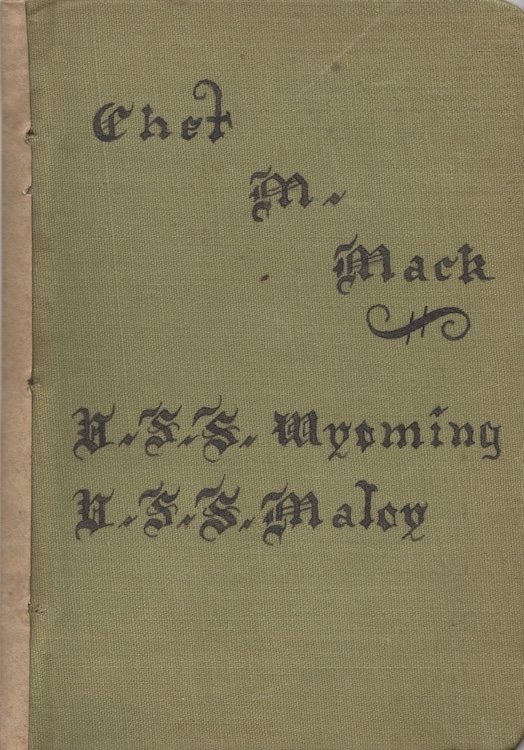 Chet
M.
Mack
U.S.S. Wyoming
U.S.S. Maloy